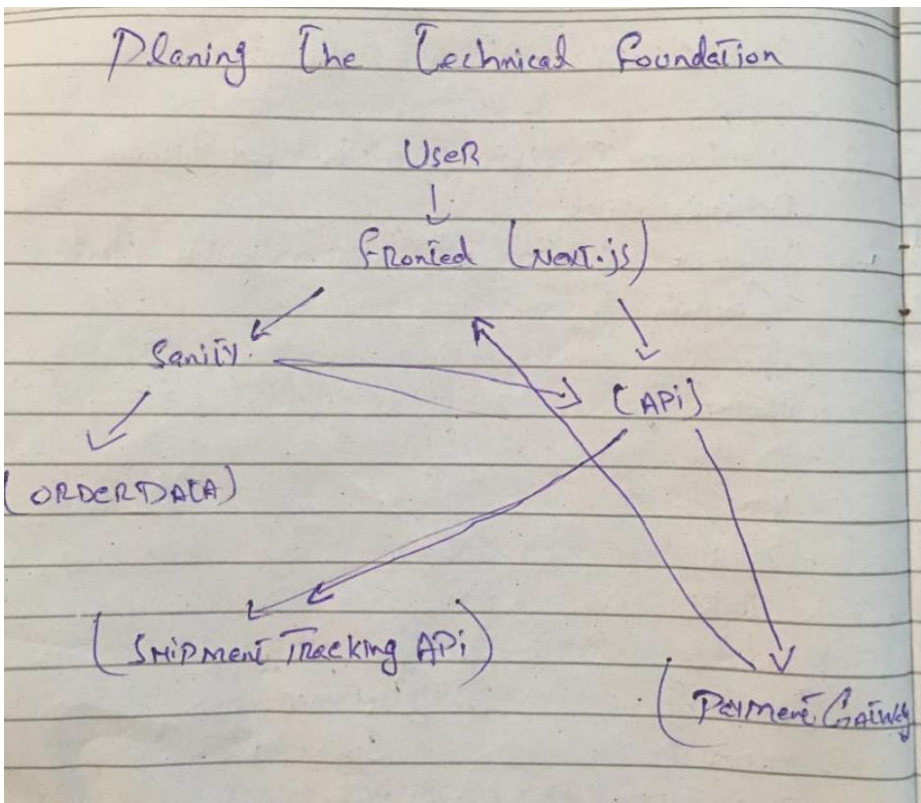 Planing The Technical Foundation
User
Fronted (Next.js)
Sanity
(API)
(ORDERDATA)
(Shipment Tracking API)
(Payment Gatway